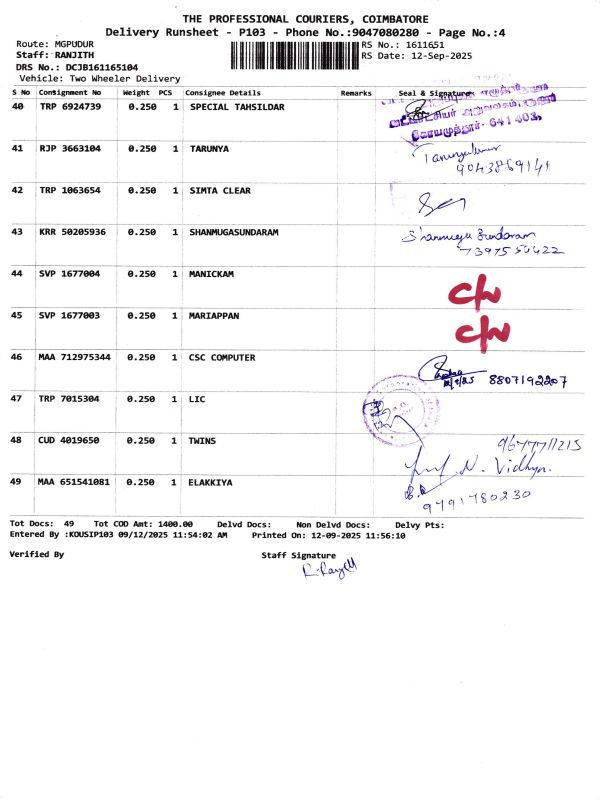 THE PROFESSIONAL COURIERS, COIMBATORE
Delivery Runsheet - P103 - Phone No.:9047080280 - Page No.:4
Route: MGPUDUR RS No.: 1611651
Staff: RANJITH RS Date: 12-Sep-2025
DRS No.: DCJB161165104
Vehicle: Two Wheeler Delivery
S No Consignment No Weight PCS Consignee Details Remarks Seal & Signature
40 TRP 6924739 0.250 1 SPECIAL TAHSILDAR
கோயமுத்தூர்- 641 402.
41 RJP 3663104 0.250 1 TARUNYA
9043869141
42 TRP 1063654 0.250 1 SIMTA CLEAR
43 KRR 50205936 0.250 1 SHANMUGASUNDARAM Shanmuga Sundaram
7397550422
44 SVP 1677004 0.250 1 MANICKAM C/N
45 SVP 1677003 0.250 1 MARIAPPAN C/N
46 MAA 712975344 0.250 1 CSC COMPUTER 8807192207
47 TRP 7015304 0.250 1 LIC
48 CUD 4019650 0.250 1 TWINS 9677711215
N. Vidhya.
49 MAA 651541081 0.250 1 ELAKKIYA
9791780230
Tot Docs: 49 Tot COD Amt: 1400.00 Delvd Docs: Non Delvd Docs: Delvy Pts:
Entered By :KOUSIP103 09/12/2025 11:54:02 AM Printed On: 12-09-2025 11:56:10
Verified By Staff Signature